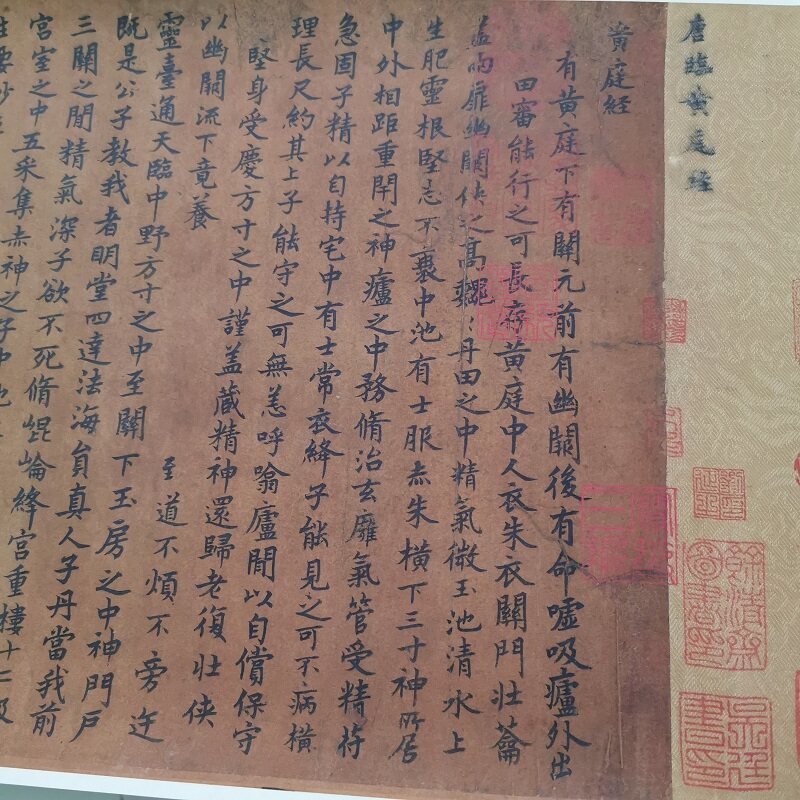 唐臨黃庭經
黃庭経
有黃庭下有關元前有幽闕後有命噓吸廬外出
田審能行之可長存黃庭中人衣朱衣關門壯蘥
蓋兩扉幽闕俠之高巍〻丹田之中精氣微玉池清水上
生肥靈根堅志不衰中池有士服赤朱橫下三寸神所居
中外相距重閇之神廬之中務脩治玄癰氣管受精苻
急固子精以自持宅中有士常衣絳子能見之可不病橫
理長尺約其上子能守之可無恙呼噏廬間以自償保守
堅身受慶方寸之中謹蓋藏精神還歸老復壯俠
以幽闕流下竟養
至道不煩不旁迕
靈臺通天臨中野方寸之中至關下玉房之中神門戶
既是公子教我者明堂四達法海員真人子丹當我前
三關之間精氣深子欲不死脩崐崘絳宮重樓十二級
宮室之中五采集赤神之子中池